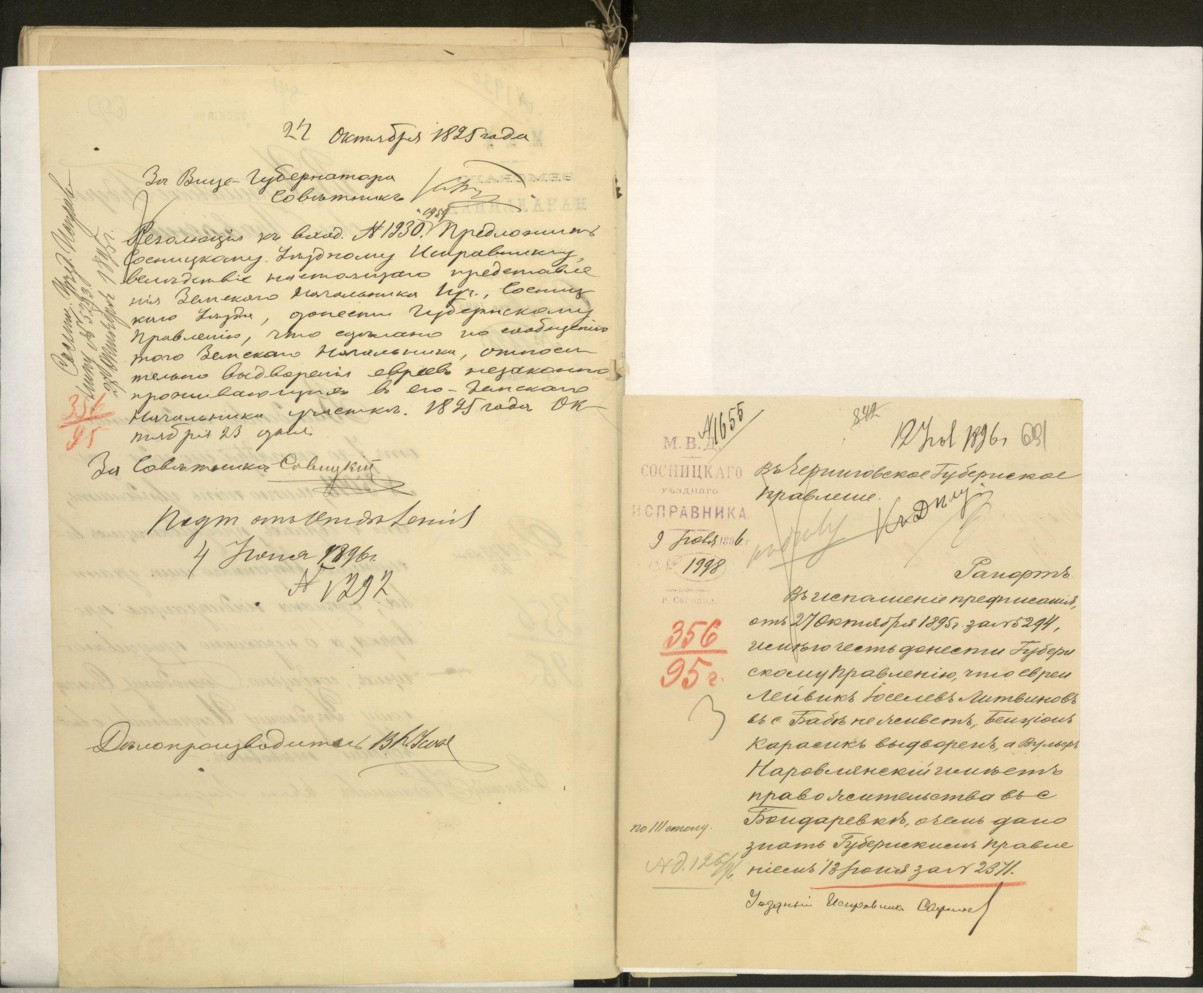 27 Октября 1895 года
За Вице-Губернатора
Совѣтникъ
Резолюція къ вход. № 1230. Предложить
Сосницкому Уѣздному Исправнику,
вслѣдствіе настоящаго представле
нія Земскаго Начальника уч., Сосниц
каго Уѣзда, донести Губернскому
Правленію, что сдѣлано по сообщенію
того Земскаго Начальника, относи
тельно выдворенія евреевъ незаконно
проживающихъ въ его - Земскаго
Начальника участкѣ. 1895 года Ок-
тября 23 дня.
За Совѣтника Савицкій
4 Іюня 1896 г.
№ 1292
Дѣлопроизводитель
Сосниц.
Октября 1895 г.
356
95
№ 1655
М. В. Д.
СОСНИЦКАГО
УѢЗДНАГО
ИСПРАВНИКА
9 1896 г.
№ 1998
г. Сосница
356
95 г.
3
842
12 1896 г.
691
Въ Черниговское Губернское
Правленіе.
Къ Дѣлу
Рапортъ
Въ исполненіе предписанія,
отъ 27 Октября 1895 г. за № 5294,
имѣю честь донести Губерн
скому Правленію, что евреи
Лейвикъ Іоселевъ Литвиновъ
въ с. Бабѣ не живетъ, Бенціонъ
Карасикъ выдворенъ, а Вульфъ
Наровлянскій имѣетъ
право жительства въ с.
Бондаревкѣ, о чемъ дано
знать Губернскимъ Правле
ніемъ 13 Іюня за № 2371.
по III столу.
№ д. 126/96
Уѣздный Исправникъ